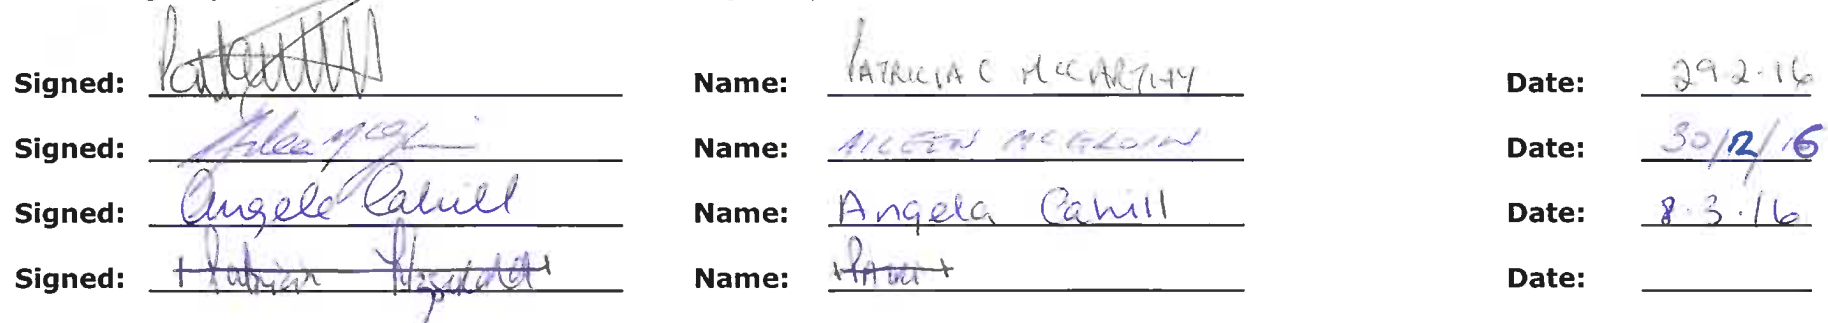 Signed: Name: PATRICIA C MCCARTHY Date: 29.2.16
Signed: Name: AILEEN MCGLOIN Date: 30/12/16
Signed: Angela Cahill Name: Angela Cahill Date: 8.3.16
Signed: Patricia Fitzgerald Name: Date: